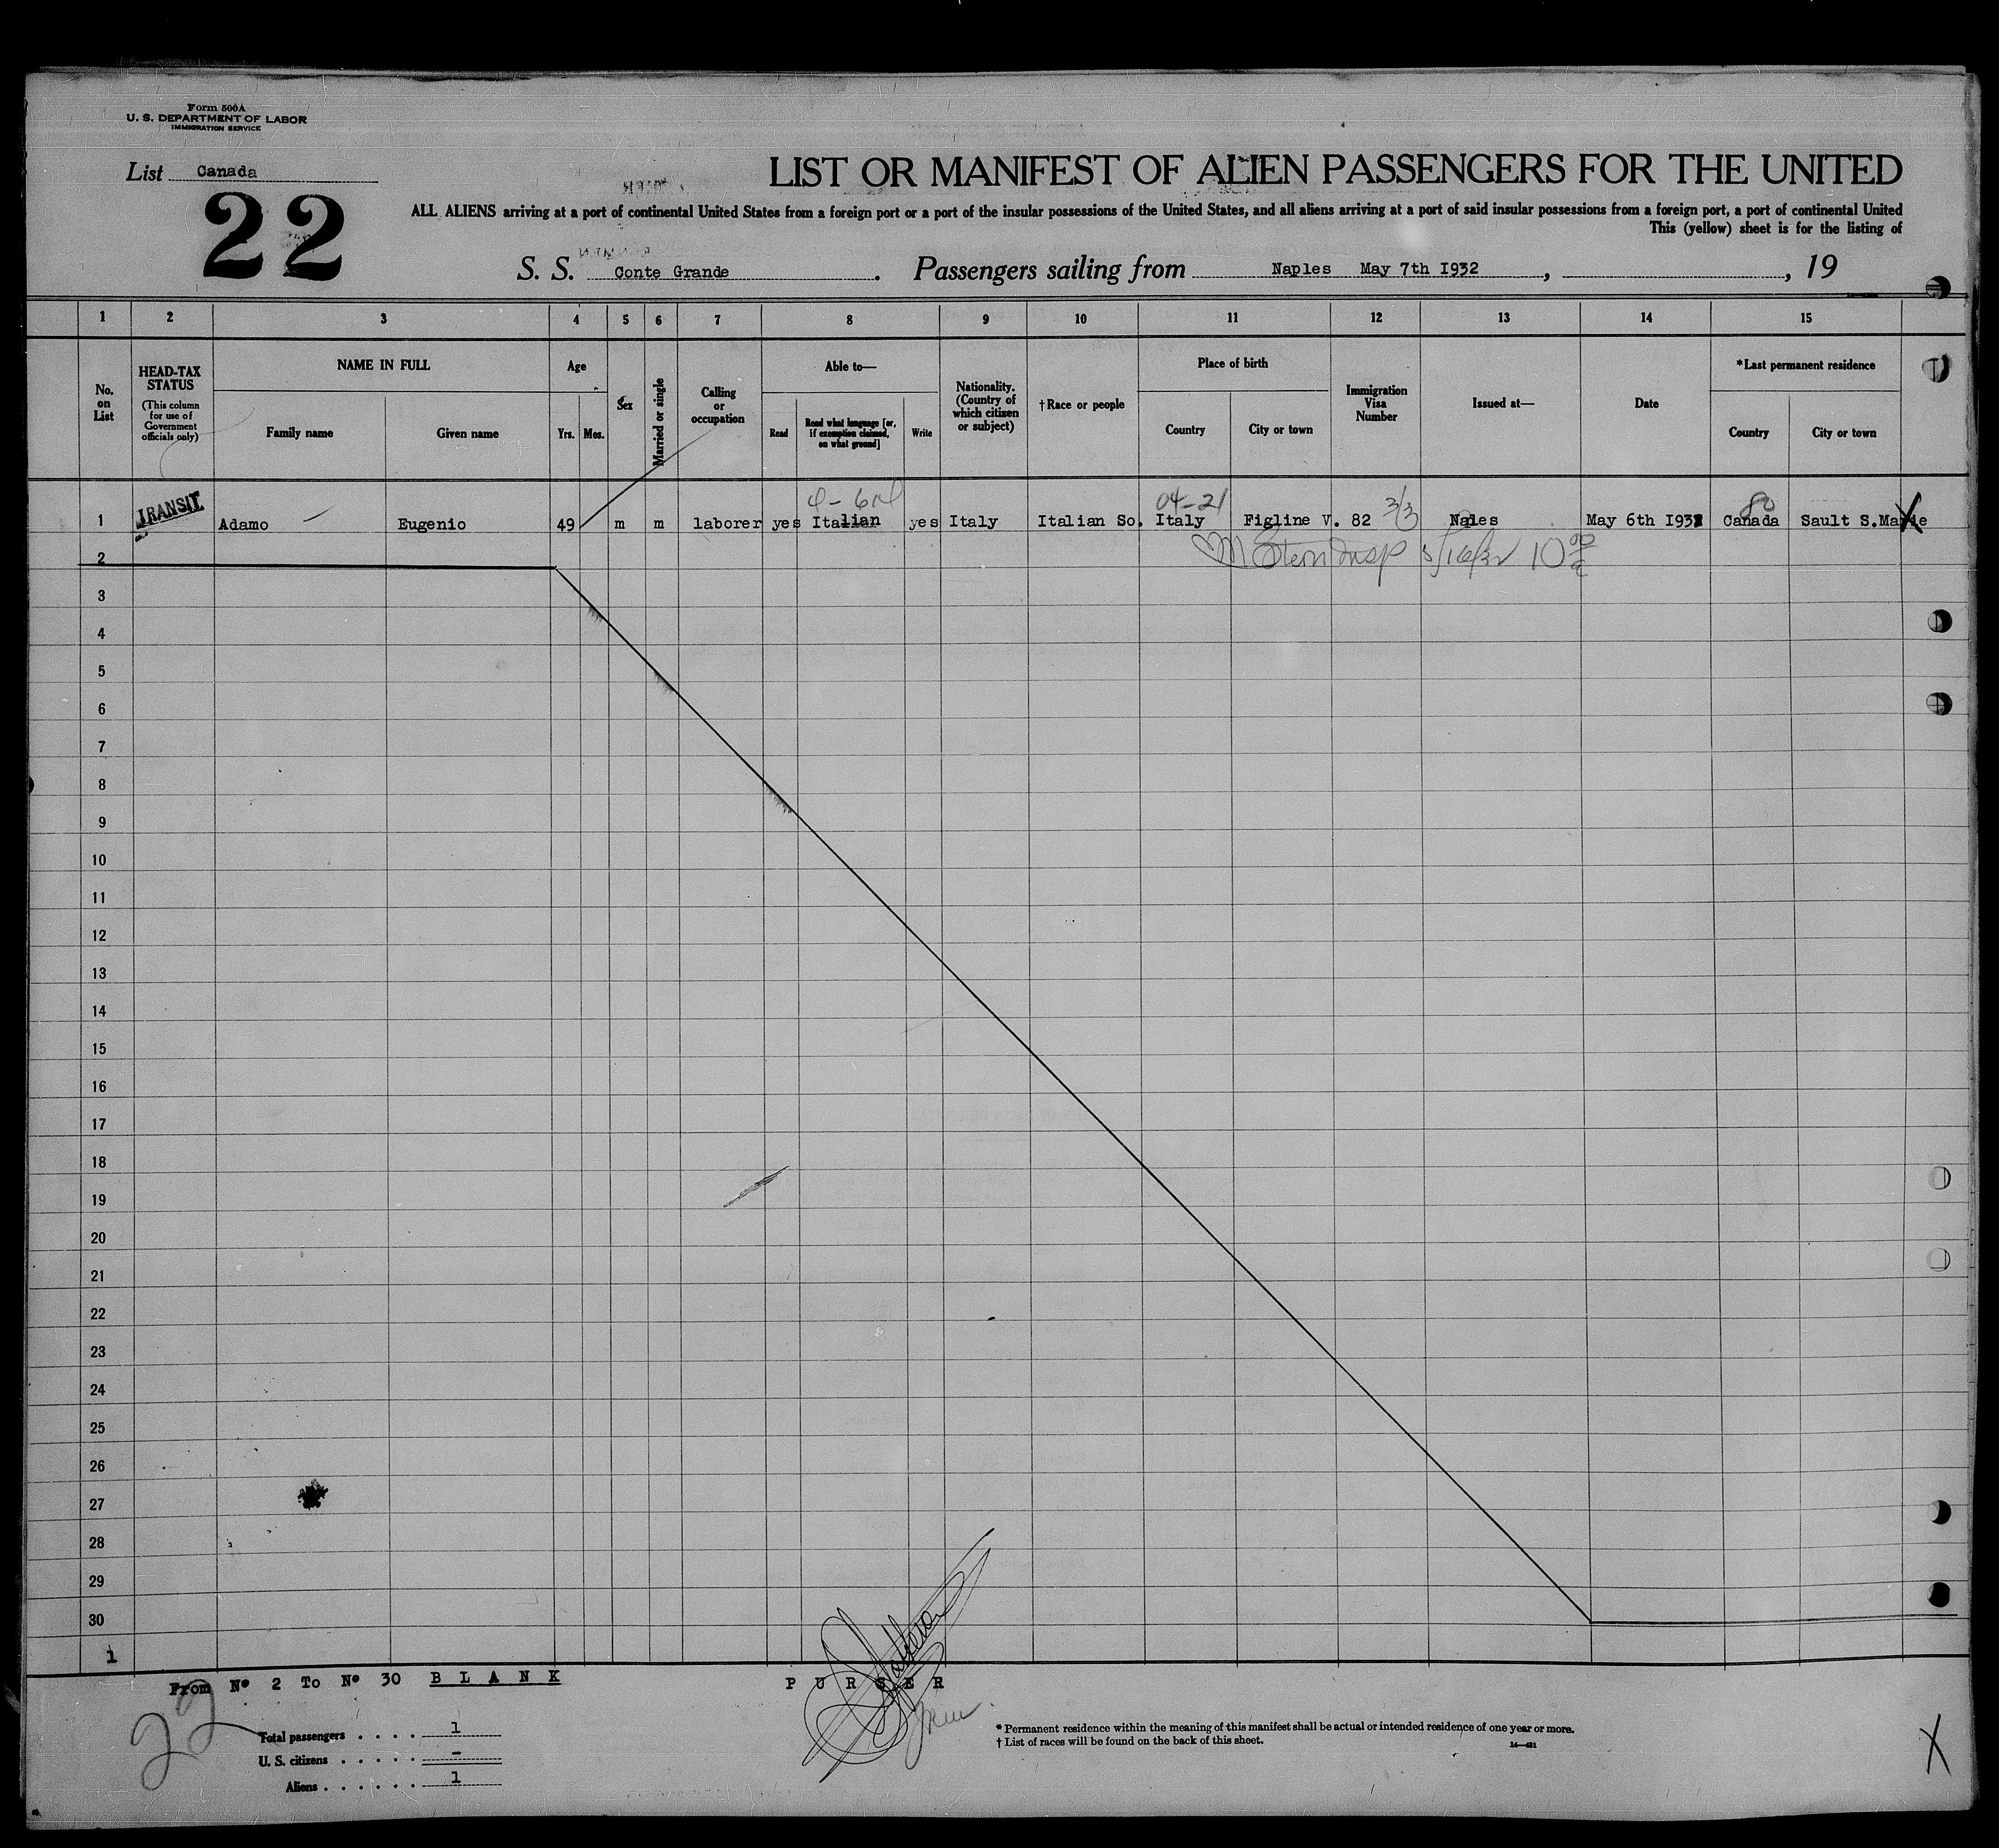 Form 500A
U. S. DEPARTMENT OF LABOR
IMMIGRATION SERVICE
List Canada
22
LIST OR MANIFEST OF ALIEN PASSENGERS FOR THE UNITED
ALL ALIENS arriving at a port of continental United States from a foreign port or a port of the insular possessions of the United States, and all aliens arriving at a port of said insular possessions from a foreign port, a port of continental United
This (yellow) sheet is for the listing of
S. S. Conte Grande. Passengers sailing from Naples May 7th I932, , 19
1 2 3 4 5 6 7 8 9 10 11 12 13 14 15
No. on List
HEAD-TAX STATUS
(This column for use of Government officials only)
NAME IN FULL
Family name
Given name
Age
Yrs. Mos.
Sex
Married or single
Calling or occupation
Able to—
Read
Read what language [or, if exemption claimed, on what ground]
Write
Nationality. (Country of which citizen or subject)
† Race or people
Place of birth
Country
City or town
Immigration Visa Number
Issued at—
Date
*Last permanent residence
Country
City or town
04-21 3/3
1 TRANSIT Adamo Eugenio 49 m m laborer yes Italian yes Italy Italian So. Italy Figline V. 82 Nales May 6th I932 Canada Sault S.Marie
2 Stern Insp 5/16/32 10
3
4
5
6
7
8
9
10
11
12
13
14
15
16
17
18
19
20
21
22
23
24
25
26
27
28
29
30
1
From Nº 2 To Nº 30 B L A N K P U R S E R
22
Total passengers . . . . 1
U. S. citizens . . . . . –
Aliens . . . . . . 1
* Permanent residence within the meaning of this manifest shall be actual or intended residence of one year or more.
† List of races will be found on the back of this sheet.
X